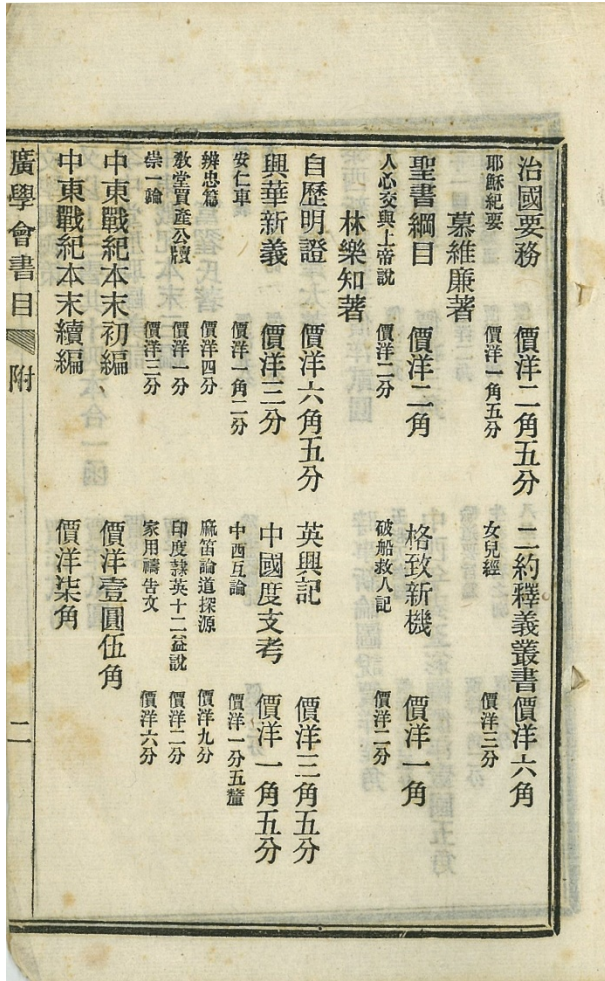 治國要務 價洋二角五分 二約釋義叢書 價洋六角
耶穌紀要 價洋一角五分 女兒經 價洋三分
慕維廉著
聖書綱目 價洋二角 格致新機 價洋一角
人心交與上帝說 價洋二分 破船救人記 價洋二分
林樂知著
自歷明證 價洋六角五分 英興記 價洋三角五分
興華新義 價洋三分 中國度支考 價洋一角五分
安仁車 價洋一角二分 中西互論 價洋一分五釐
辨忠篇 價洋四分 麻笛論道探源 價洋九分
教堂買產公牘 價洋一分 印度隸英十二益說 價洋二分
崇一論 價洋三分 家用禱告文 價洋六分
中東戰紀本末初編 價洋壹圓伍角
中東戰紀本末續編 價洋柒角
廣學會書目 附 二